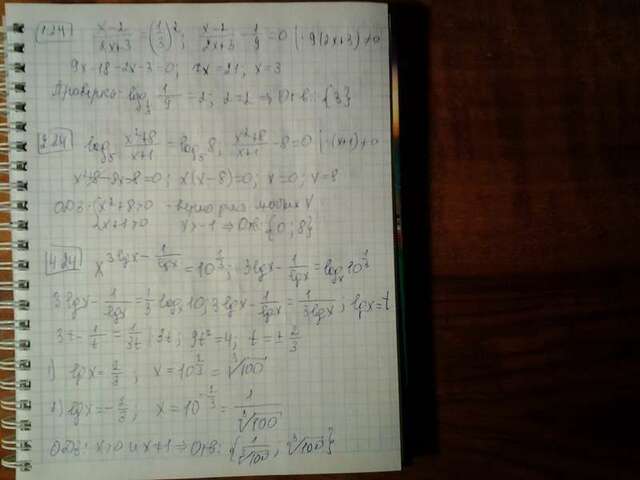 1.24 (x-2)/(2x+3) = (1/3)²; (x-2)/(2x+3) - 1/9 = 0 | ·9(2x+3) ≠ 0
9x-18-2x-3=0; 7x=21, x=3
Проверка: log_(1/3) 1/9 = 2; 2=2 ⇒ Отв: {3}
2.24 log₅ (x²+8)/(x+1) = log₅ 8, (x²+8)/(x+1) - 8 = 0 | ·(x+1) ≠ 0
x²+8-8x-8=0; x(x-8)=0; x=0; x=8
ОДЗ: {x²+8>0 - верно для любых x
x+1>0 x>-1 ⇒ Отв: {0; 8}
4.24 x^(3lgx - 1/lgx) = 10^(1/3); 3lgx - 1/lgx = logₓ 10^(1/3)
3lgx - 1/lgx = 1/3 logₓ 10, 3lgx - 1/lgx = 1/(3lgx); lgx=t
3t - 1/t = 1/3t |·3t; 9t²=4; t=±2/3
1) lgx = 2/3; x = 10^(2/3) = ³√100
2) lgx = -2/3; x = 10^(-2/3) = 1/³√100
ОДЗ: x>0 и x≠1 ⇒ Отв: {1/³√100, ³√100}